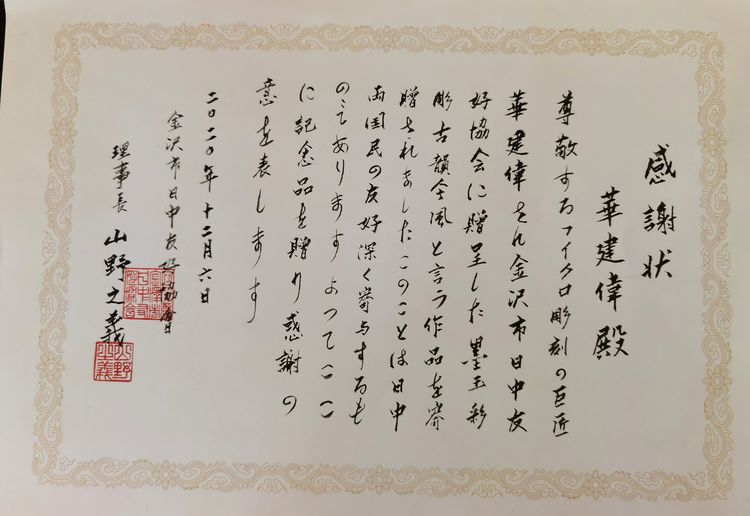 感謝状
華建偉殿
尊敬するマイクロ彫刻の巨匠
華建偉さん金沢市日中友
好協会に贈呈した墨玉彩
彫古韻今風と言う作品を寄
贈されましたこのことは日中
両国民の友好深く寄与するも
のてあります よつてここ
に記念品を贈り感謝の
意を表します
二〇二〇年十二月六日
金沢市日中友好協會
理事長 山野之義
山野之義